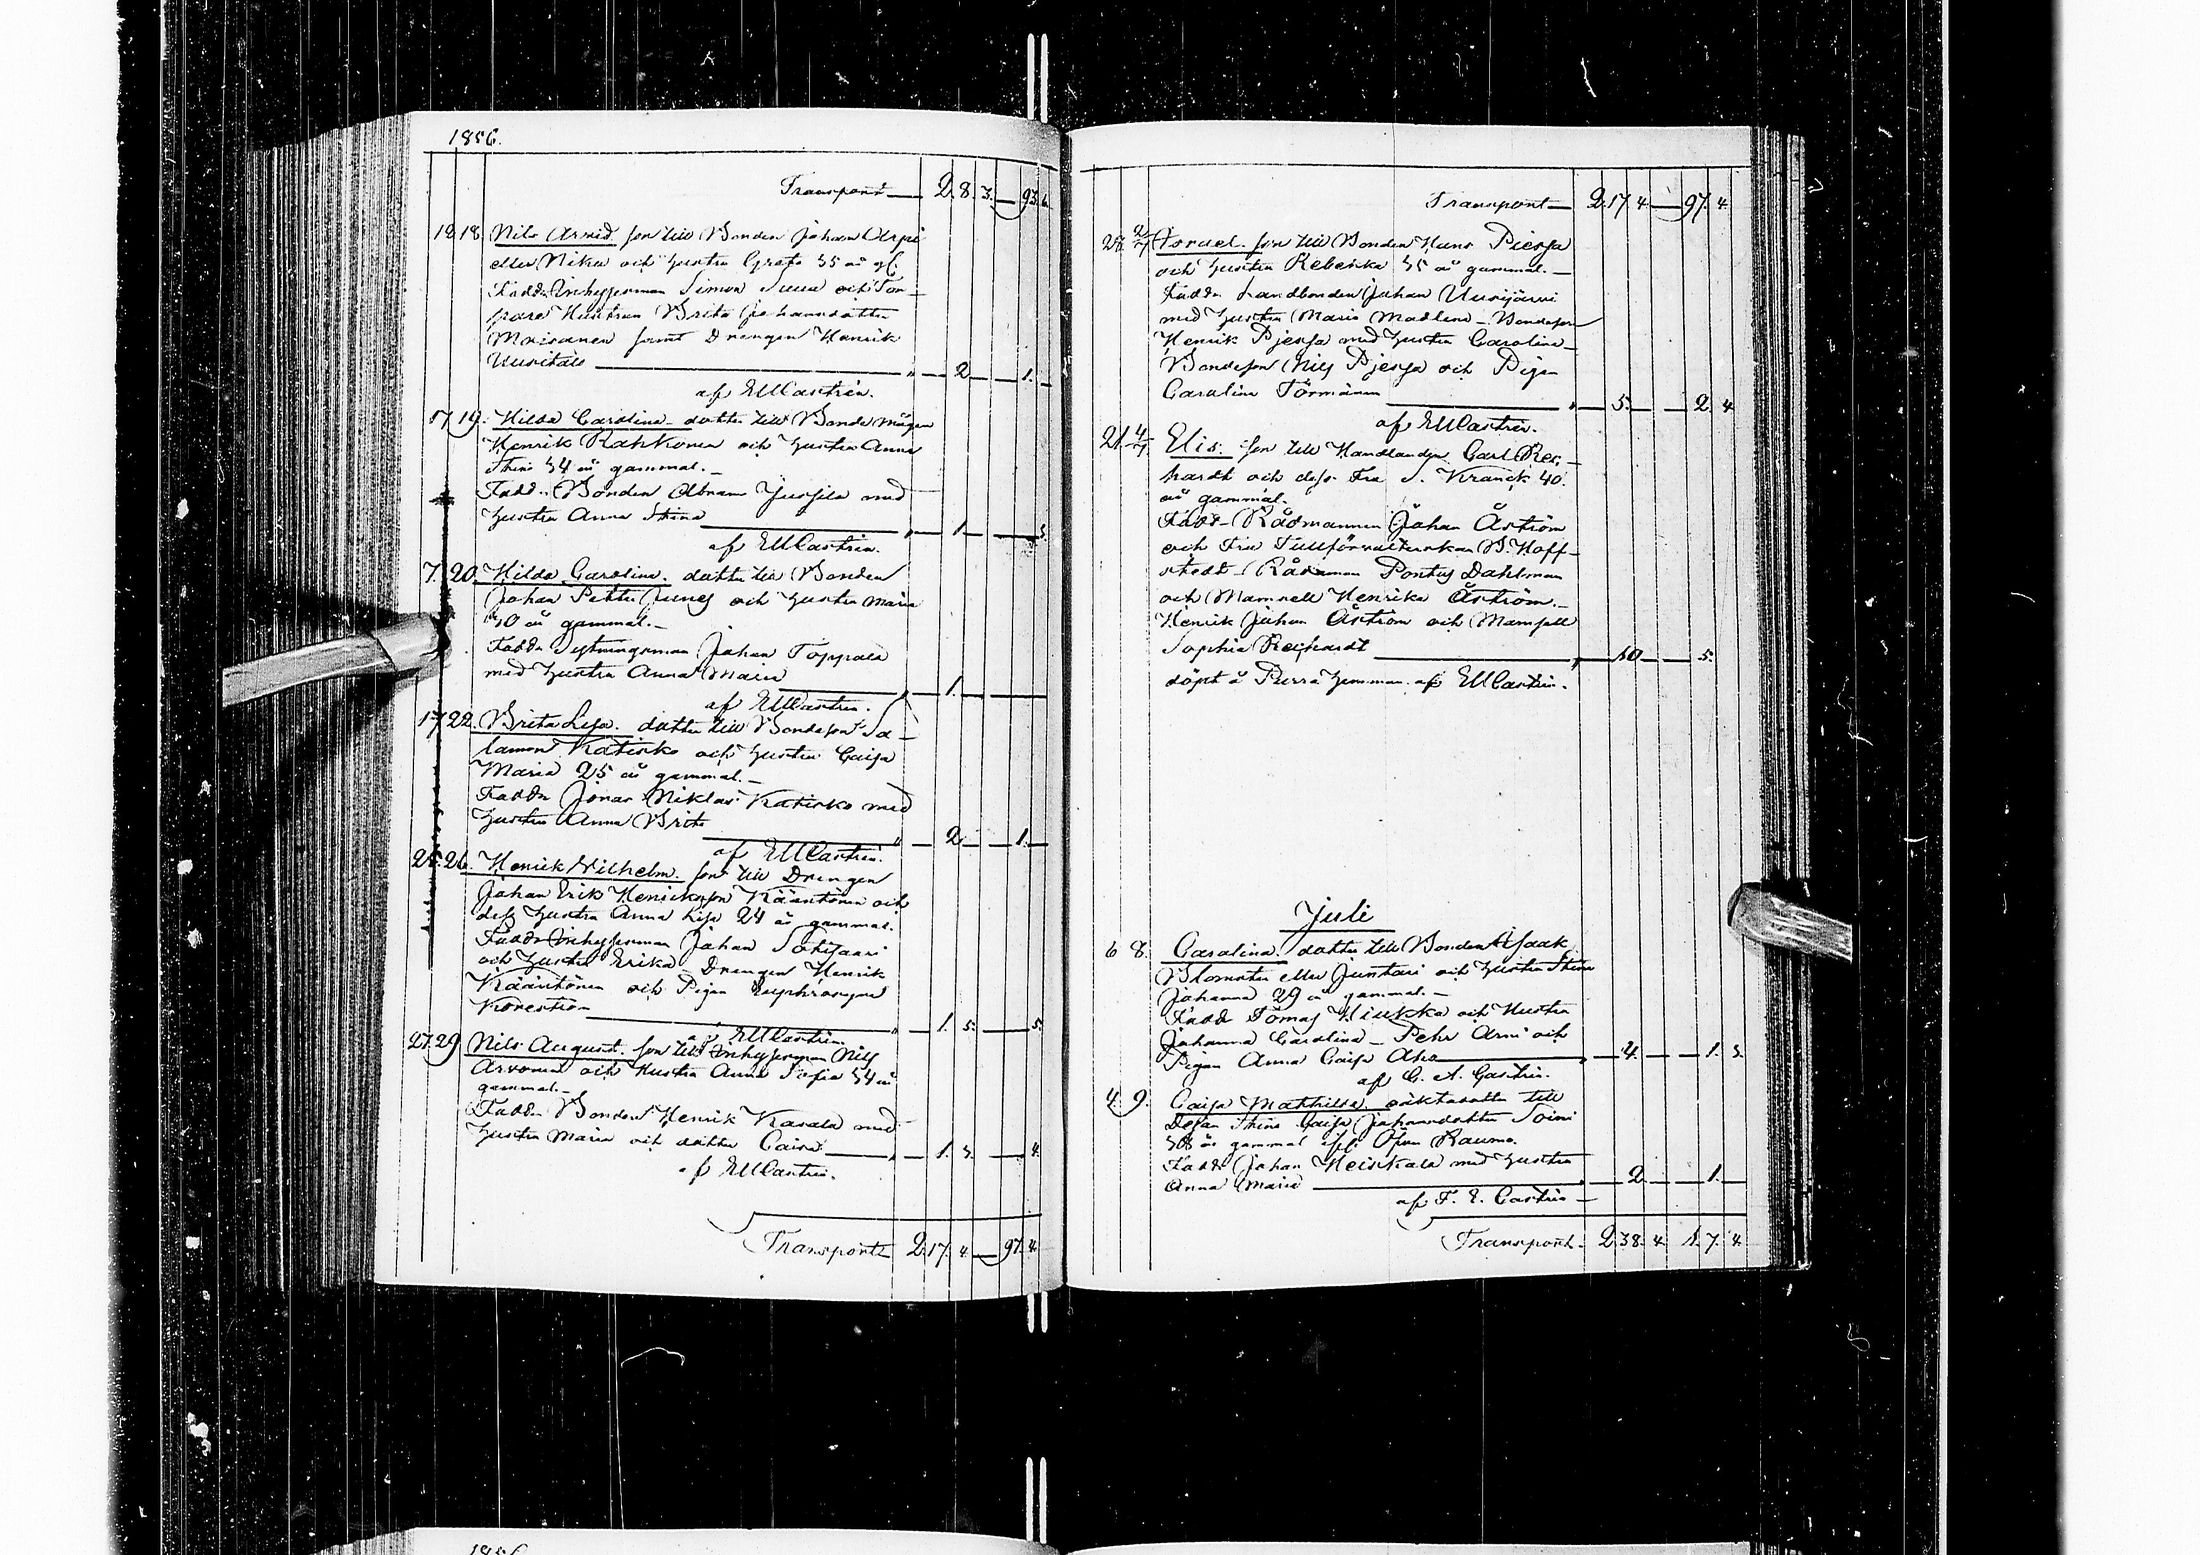 1856.
Transport 2. 8. 3. 93.
12 18. Nils Arvid son till Bonden Johan Arpi
eller Niku och hustru Greta 35 år gl.
Fadd: Inhysesman Simon och Tor-
pare Hustrun Brita Johansdotter
samt Drengen Henrik
Uusitalo 2 1.
af EMCastrén.
17 19. Hilda Carolina dotter till Bonde mågen
Henrik Rahkonen och hustru Anna
Stina 34 år gammal.
Fadd. Bonden Abram Jussila med
hustru Anna Stina 1 3.
af EMCastrén.
7. 20. Hilda Carolina. dotter till Bonden
Johan Petter Junes och hustru Maria
30 år gammal.
Fadd. Sextningsman Johan Toppala
med hustru Anna Maria 1.
af EMCastrén.
17 22. Brita Lisa. dotter till Bondeson Sa-
lamon Katisko och hustru Caisa
Maria 25 år gammal.
Fadd. Jonas Niklas Katisko med
hustru Anna Brita 2 1.
af EMCastrén.
25. 26. Henrik Wilhelm. son till Drengen
Johan Erik Henricksson Kääntönen och
dess hustru Anna Lisa 24 år gammal.
Fadd. Inhysesman Johan
och hustru Erika Drengen Henrik
Kääntönen och Pigan Euphrosyne
1. 5. 5.
af EMCastrén
27. 29 Nils August. son till Inhysesman Nils
Arvonen och Hustru Anna Sofia 34 år
gammal.
Fadd. Bonden Henrik Kasala med
hustru Maria och dotter Caisa 1. 3. 4.
af EMCastrén.
Transport 2. 17. 4. 97. 4.
Transport 2. 17 4. 97. 4.
28. 2/7 Israel. son till Bonden Hans Piessa
och hustru Rebecka 35 år gammal.
Fadd. Landbonden Johan Uusijärvi
med hustru Maria Madlena Bondeson
Henrik Pjessa med hustru Carolina
Bondeson Nils Pjessa och Pigan
Carolina Törmänen 5. 2. 4
af EMCastrén.
21. 4/7 Elis. son till Handlanden Carl Rec-
hardt och dess Fru S. Kranck 40.
år gammal.
Fadd. Rådmannen Johan Åström
och Fru Tullförvalterskan B. Hoff-
stedt Rådman Pontus Dahlman
och Mamsell Henrika Åström.
Henrik Johan Åström och Mamsell
Sophia Rechardt 10 5.
döpt å Purra hemman af EMCastrén.
Juli
6 8. Carolina. dotter till Bonden Isaak
Blomster eller Juntari och hustru Stina
Johanna 29 år gammal.
Fadd Tomas Kiukka och Hustru
Johanna Carolina Pehr Arni och
Pigan Anna Caisa Aho 4. 1. 3.
af C. A. Castrén.
4. 9. Caisa Mathilda. oäktadotter till
Dejan Stina Caisa Johansdotter Soini
38 år gammal ifr. Öfver Rauma.
Fadd. Johan Heiskala med hustru
Anna Maria 2 1.
af F. E. Castrén
Transport. 2. 38. 4. 1. 7. 4.
1856